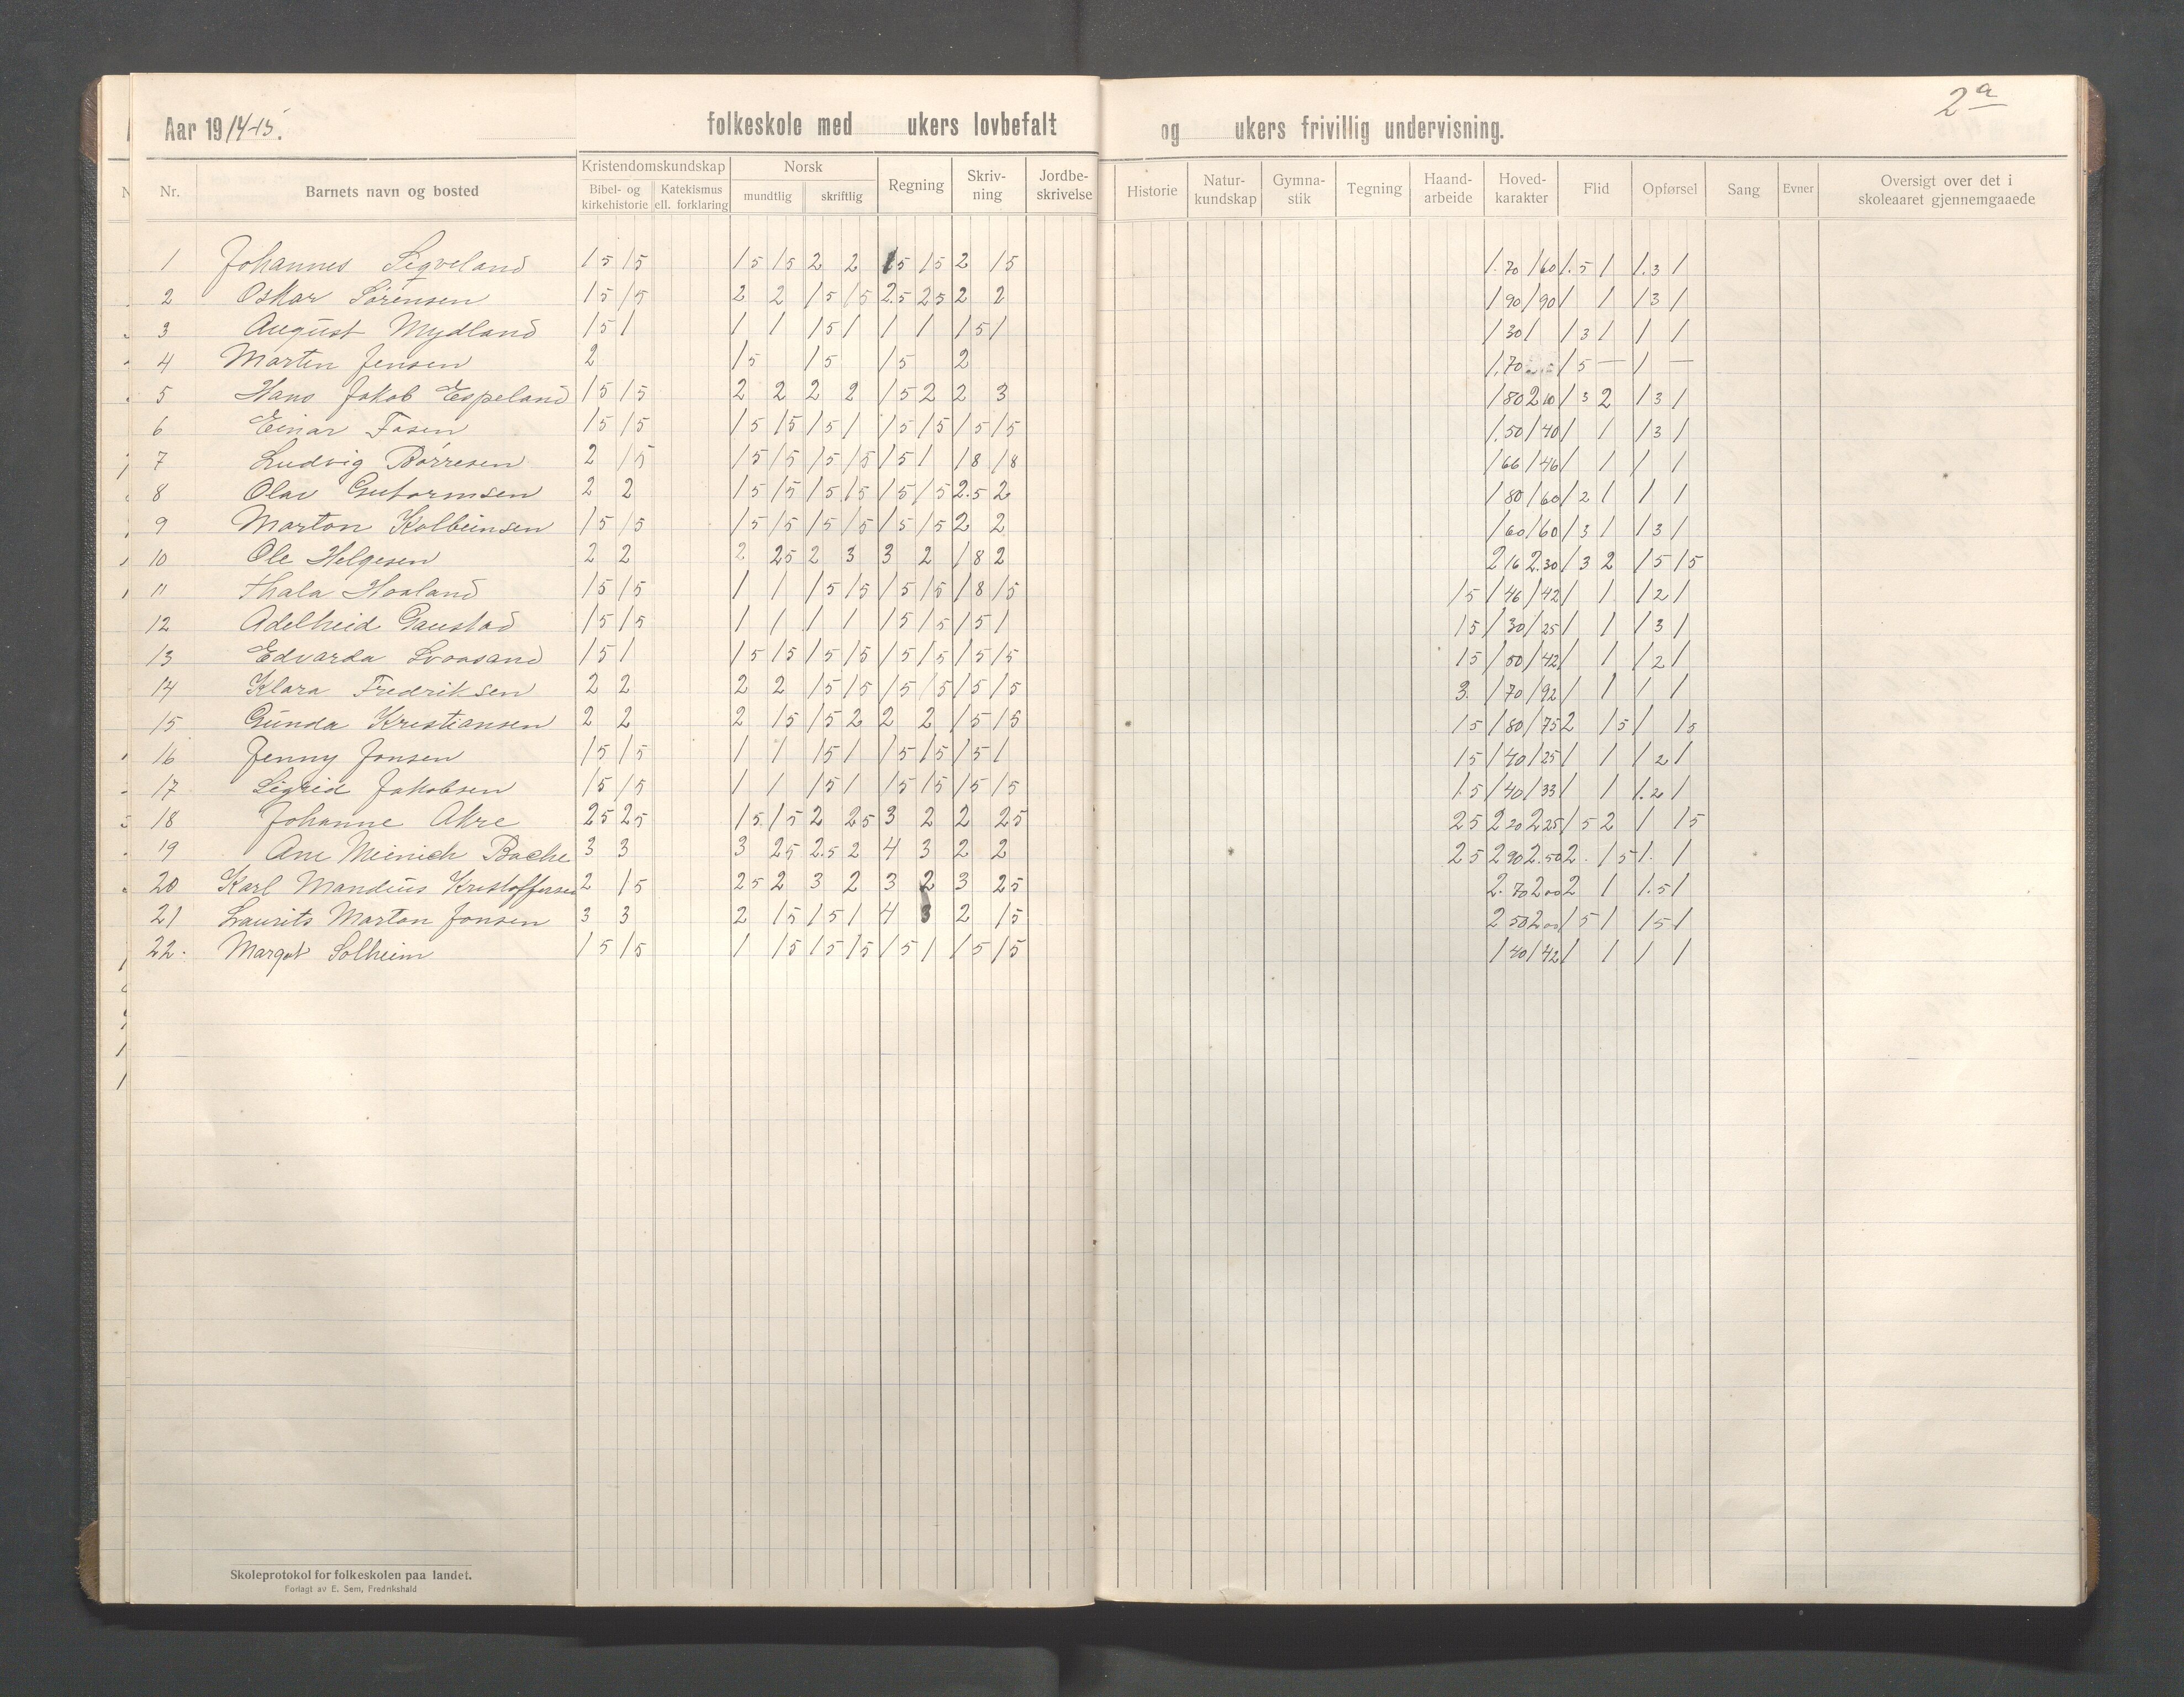 2a
Aar 1914-15. folkeskole med ukers lovbefalt og ukers frivillig undervisning.
Nr. Barnets navn og bosted Kristendomskundskap Bibel- og kirkehistorie Katekismus ell. forklaring Norsk mundtlig skriftlig Regning Skriv-ning Jordbe-skrivelse Historie Natur-kundskap Gymna-stik Tegning Haand-arbeide Hoved-karakter Flid Opførsel Sang Evner Oversigt over det i skoleaaret gjennemgaaede
1 Johannes Sigveland 15 15 15 15 2 2 15 15 2 15 1.70 160 1.5 1 1.3 1
2 Oskar Sørensen 15 15 2 2 15 15 2.5 25 2 2 190 190 1 1 13 1
3 August Mydland 15 1 1 1 15 1 1 1 15 1 130 1 13 1 1 1
4 Martin Jensen 2 15 15 15 2 1.70 15 — 1 —
5 Hans Jakob Espeland 15 15 2 2 2 2 15 2 2 3 180 210 13 2 13 1
6 Einar Fosen 15 15 15 15 15 1 15 15 15 15 1.50 140 1 1 13 1
7 Ludvig Børresen 2 15 15 15 15 15 15 1 18 18 166 146 1 1 1 1
8 Olav Gutormsen 2 2 15 15 15 15 15 15 2.5 2 180 160 12 1 1 1
9 Marton Kolbeinsen 15 15 15 15 15 15 15 15 2 2 160 160 13 1 13 1
10 Ole Helgesen 2 2 2 25 2 3 3 2 18 2 216 2.30 13 2 15 15
11 Thala Hoaland 15 15 1 1 15 15 15 15 18 15 15 146 142 1 1 12 1
12 Adelheid Gaustad 15 15 1 1 1 1 15 15 15 1 15 130 125 1 1 13 1
13 Edvarda Svaasand 15 1 15 15 15 15 15 15 15 15 15 150 142 1 1 12 1
14 Klara Fredriksen 2 2 2 2 15 15 15 15 15 15 3. 170 192 1 1 1 1
15 Gunda Kristiansen 2 2 2 15 15 2 2 2 15 15 15 180 175 2 15 1 15
16 Jenny Jonsen 15 15 1 1 15 1 15 15 15 1 15 140 125 1 1 12 1
17 Sigrid Jakobsen 15 15 1 1 15 1 15 15 15 15 15 140 133 1 1 1.2 1
18 Johanne Akre 25 25 15 15 2 25 3 2 2 25 25 220 225 15 2 1 15
19 Ane Meinich Bache 3 3 3 25 2.5 2 4 3 2 2 25 290 2.50 2. 15 1. 1
20 Karl Mandius Kristoffersen 2 15 25 2 3 2 3 2 3 25 2.70 200 2 1 1.5 1
21 Laurits Marton Jonsen 3 3 2 15 15 1 4 3 2 15 250 200 15 1 15 1
22. Margot Solheim 15 15 1 15 15 15 15 1 15 15 140 142 1 1 1 1
Skoleprotokol for folkeskolen paa landet.
Forlagt av E. Sem, Fredrikshald